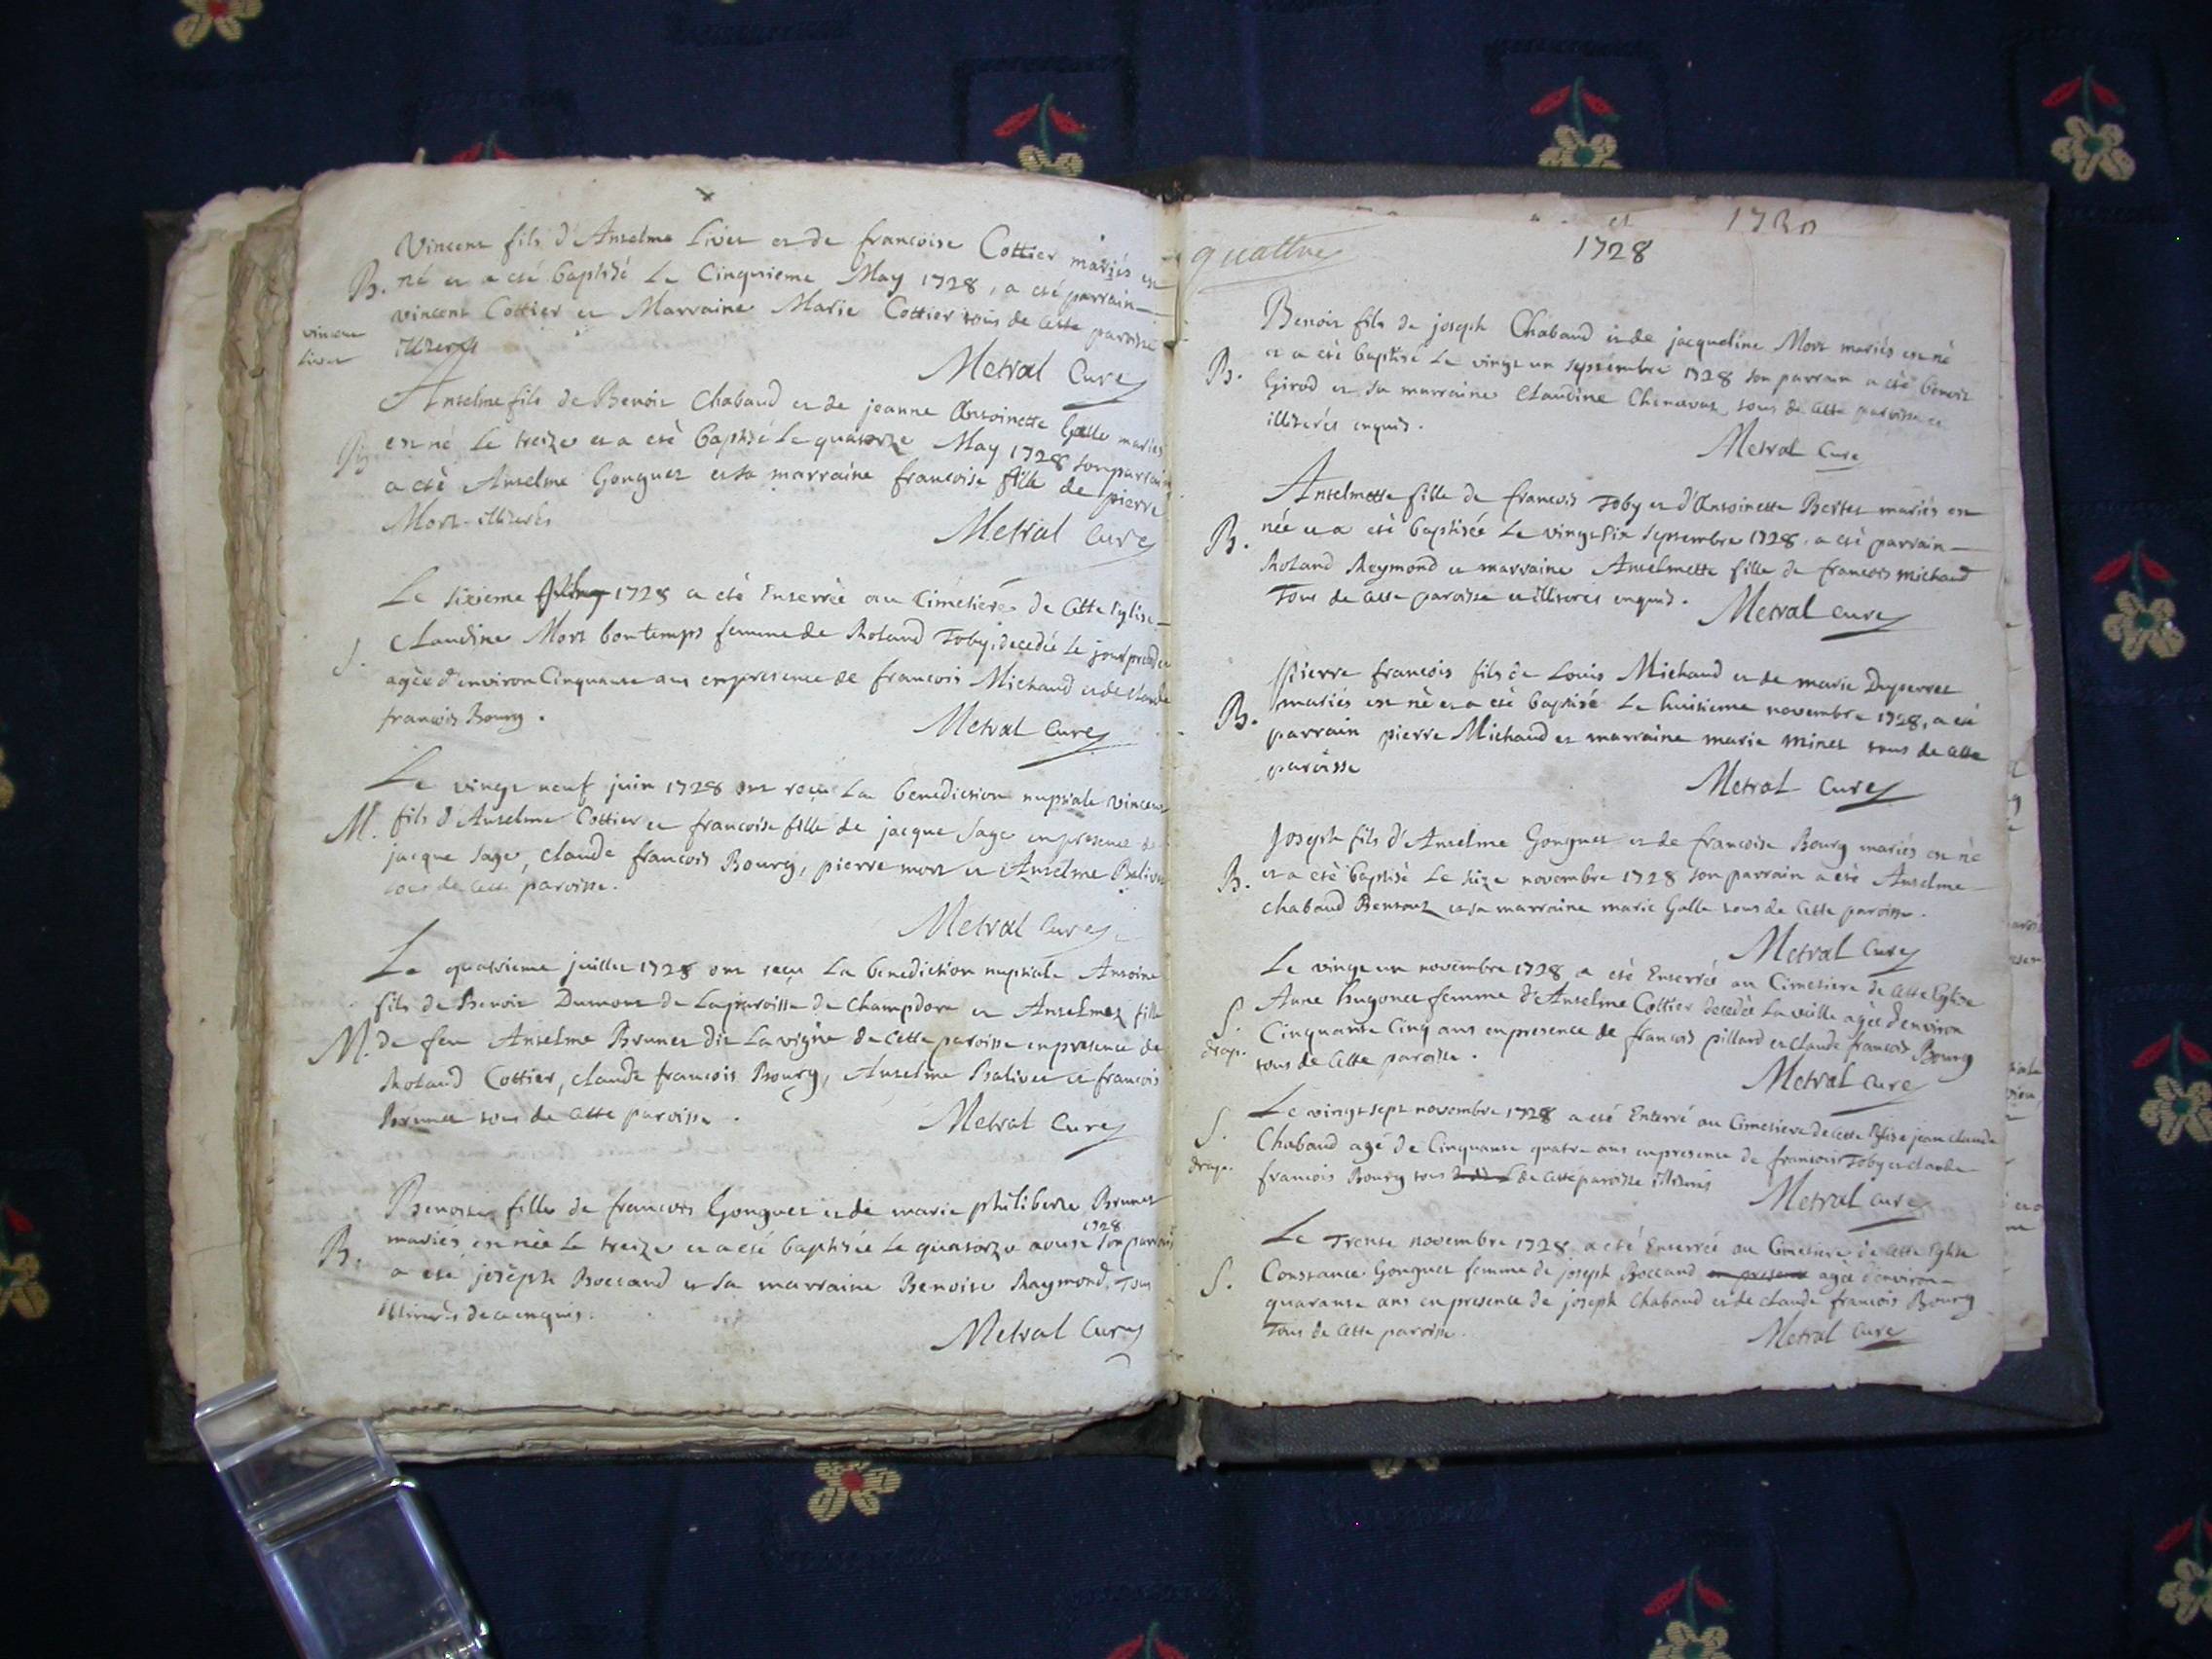 Vincent fils d'Anselme Livet et de francoise Cottier mariés est
B. né et a eté baptisé Le Cinquieme May 1728, a eté parrain
vincent Cottier et Marraine Marie Cottier tous de cette paroisse
vincent
Livet
illiterés
Metral Curé
Anselme fils de Benoit Chabaud et de jeanne Antoinette Galle mariés
B. est né Le treize et a eté baptisé Le quatorze May 1728 son parrain
a eté Anselme Gonguet et sa marraine francoise fille de pierre
Mort illiterés
Metral Curé
Le sixieme 1728 a eté Enterrée au Cimetiere de Cette Eglise
Claudine Mort bontemps femme de Roland Toby, decedée Le jour
S. agée d'environ Cinquante ans en presence de francois Michaud et de Claude
francois Bourg.
Metral Curé
Le vingt neuf juin 1728 ont reçu La benediction nuptiale vincent
M. fils d'Anselme Cottier et francoise fille de jacque Sage en presence de
jacque Sage, Claude francois Bourg, pierre mort et Anselme Balivet
tous de cette paroisse.
Metral Curé
Le quatrieme juillet 1728 ont reçu La benediction nuptiale Antoine
fils de Benoit Dumont de La paroisse de Champdore et Anselmez fille
M. de feu Anselme Brunet dit La vigne de Cette paroisse en presence de
Roland Cottier, Claude francois Bourg, Anselme Balivet et francois
Brunet tous de Cette paroisse.
Metral Curé
Benoite fille de francois Gonguet et de marie philiberte Brunet
1728
B. mariés est née Le treize et a eté baptisée Le quatorze aoust son parrain
a eté joseph Boccand et Sa marraine Benoite Raymond, Tous
illiterés de ce enquis.
Metral Curé
1730
quattre
1728
Benoit fils de joseph Chabaud et de jacqueline Mort mariés est né
B. et a eté baptisé Le vingt un septembre 1728 son parrain a eté benoit
Girod et sa marraine Claudine Chenavat tous de Cette paroisse et
illiterés enquis.
Metral Curé
Anselmette fille de francois Toby et d'Antoinette Bertet mariés est
B. née et a eté baptisée Le vingt six septembre 1728. a eté parrain
Roland Reymond et marraine Anselmette fille de francois michaud
Tous de Cette paroisse et illiterés enquis.
Metral Curé
Pierre francois fils de Louis Michaud et de marie Duperret
B. mariés est né et a eté baptisé Le huitieme novembre 1728, a eté
parrain pierre Michaud et marraine marie minet tous de Cette
paroisse
Metral Curé
Joseph fils d'Anselme Gonguet et de francoise Bourg mariés est né
B. et a eté baptisé Le seize novembre 1728 son parrain a eté Anselme
Chabaud et sa marraine marie Galle tous de Cette paroisse.
Metral Curé
Le vingt un novembre 1728 a eté Enterrée au Cimetiere de Cette Eglise
S. Anne hugonet femme d'Anselme Cottier decedée La veille agée d'environ
drap. Cinquante Cinq ans en presence de francois pillard et Claude francois Bourg
tous de Cette paroisse.
Metral Curé
Le vingt sept novembre 1728 a eté Enterré au Cimetiere de Cette Eglise jean Claude
S. Chabaud agé de Cinquante quatre ans en presence de francois Toby et Claude
drap. francois Bourg tous de Cette paroisse illiterés
Metral Curé
Le Trente novembre 1728. a eté Enterrée au Cimetiere de Cette Eglise
S. Constance Gonguet femme de joseph Boccand en presence agée d'environ
quarante ans en presence de joseph Chabaud et de Claude francois Bourg
Tous de Cette paroisse.
Metral Curé